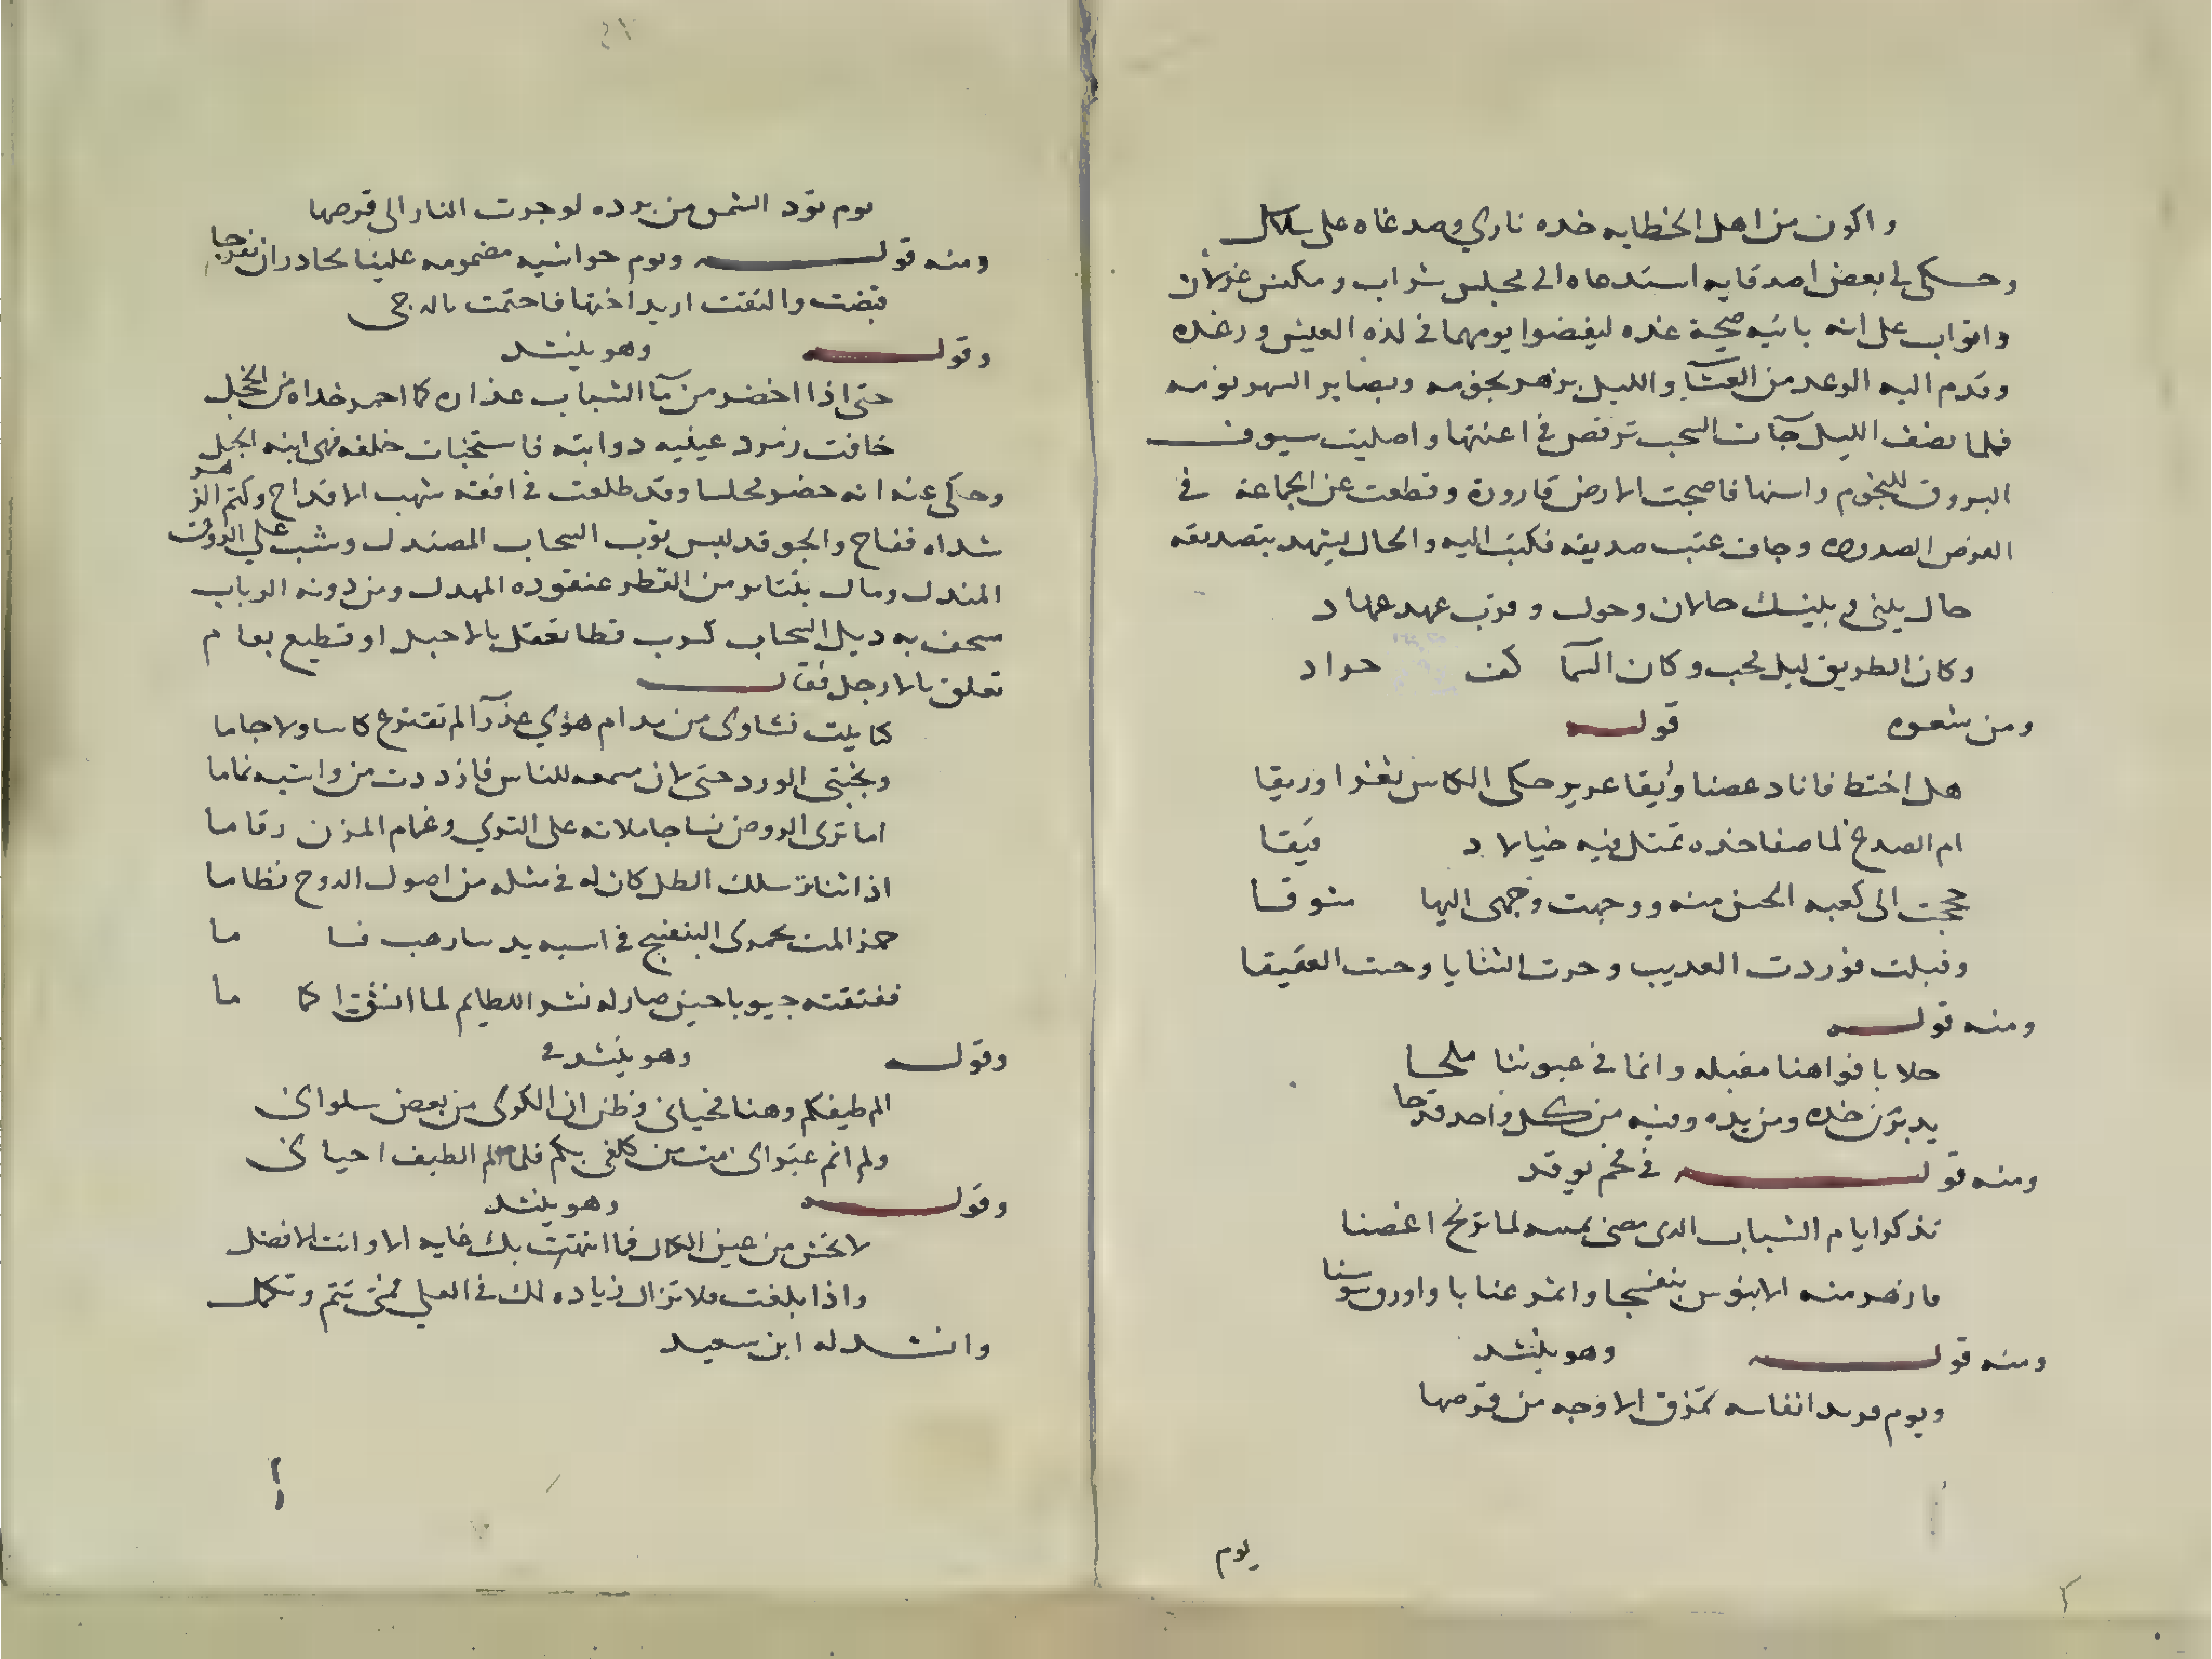 واكون من اهل الخطايه خده ناري وصدغاه على سلاسل
وحكى لي بعض اصدقايه استدعاه الى مجلس شراب ومكنس غزلان
واتراب على انه ياتيه صحية غده ليفضوا يومهما في لذه العيش ورغده
وقدم اليه الوعد من العشآ والليل يزهر بجومه ويصابر السهر نومه
فلما نصف الليل جآت السحب ترقص في اعنتها واصليت سيوف
البروق للنجوم واسنها فاصبحت الارض قارورة وقطعت عن الجماعة في
العرض الصدوره وخاف عتب صديقه فكتب اليه والحال يشهد بتصديقه
حال بيني وبينك حالان وحول وقرب عهد عهاد
وكان الطريق ليل محب وكان السمآ كف جواد
ومن شعره قوله
هل اختط فاناد غصنا وريقا غرير حكى الكاس ثغرا وريقا
ام الصدغ لما صفا خده تمثل فيه خيالا د قيقا
حججت الى كعبه الحسن منه ووجهت وجهي اليها مشوقا
وقبلت فوردت العديب وحرت الثنايا وحت العقيقا
ومنه قوله
حلا بافواهنا مقبله وانما في عيوننا ملحا
يدير من خده ومن يده وفيه من كل واحد قدحا
ومنه قوله في فحم يوقد
تذكر ايام الشباب الدى مضى بمسه لما ترنح اغصنا
فازهر منه الابنوس بنفسجا واثمر عنابا واورق سوسنا
ومنه قوله وهو ينشد
ويوم فريد انفاسه تمزق الاوجه من قرصها
يوم
يوم تود الشمس من برده لو جرت النار الى قرصها
ومنه قوله ويوم حواشيه مضمومه علينا تحادر ان تفرجا
قبضت والتفتت اريد اختها فاحتمت بالدجى
وقوله وهو ينشد
حتى اذا اخضر من مآ الشباب عذاره كما احمر خداه من الخجل
خافت زمرد عينيه دوابته فاستخبات خلفه فهى ابنه الجبل
وحكى عنه انه حضر مجلسا وقد طلعت في افقه شهب الاقداح وكتم الزهر
شداه ففاح والجو قد لبس ثوب السحاب المصندل وشب على الروض
المندل ومال بتناثر من القطر عنقوده المهدل ومن دونه الرباب
سحف به ديل السحاب كسرب قطا تعقل بالاحبل او قطيع نعام
تعلق بالارجل فقال
كنا بليت نشاوى من مدام هوي عذرآ لم تفترع كاسا ولا جاما
ويجتبي الورد حتى لان مسمعه للناس فازددت من واشيه نماما
اما ترى الروض نساجا ملاته على الثري وغمام المزن رقاما
اذا تناثر سلك الطل كان له في مثله من اصول الدوح نظاما
حمزالمت بحمدى البنفسج في اسيه يد سارهب فسا ما
ففتقته جيوبا حين صار له نشر اللطايم لما انشق اكما ما
وقوله وهو ينشد
الم طيفكم وهنا فحياني وظن ان الكرى من بعض سلواني
ولم انم غير اني مت من كلفي بكم فلما الم الطيف احياني
وقوله وهو ينشد
لا تخش من عين الكمال فما انتهت بك غايه الا وانت الافضل
واذا بلغت فلا تزال زياده لك في العلي فمتى تتم وتكمل
وانشد له ابن سعيد